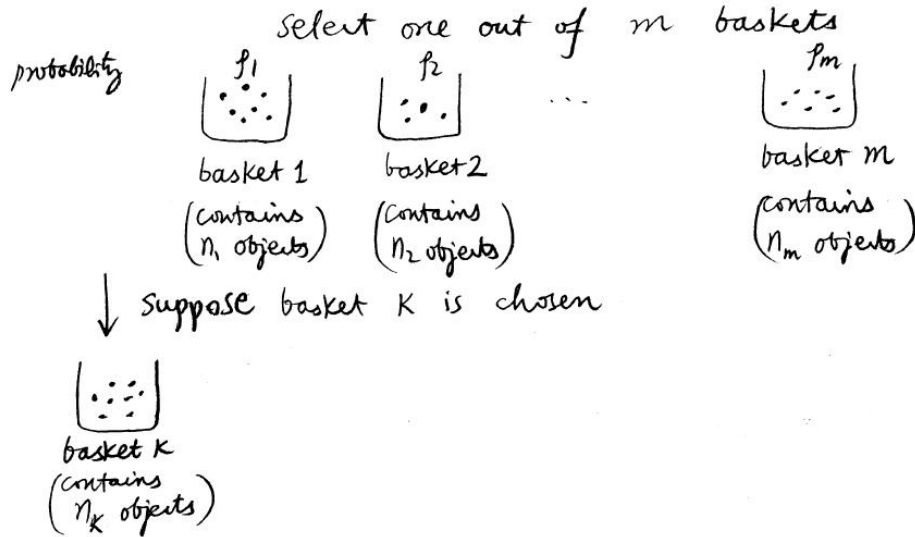 select one out of m baskets
probability p₁ p₂ ... pₘ
basket 1 basket 2 basket m
(contains n₁ objects) (contains n₂ objects) (contains nₘ objects)
↓ suppose basket K is chosen
basket K
(contains
n_K objects)